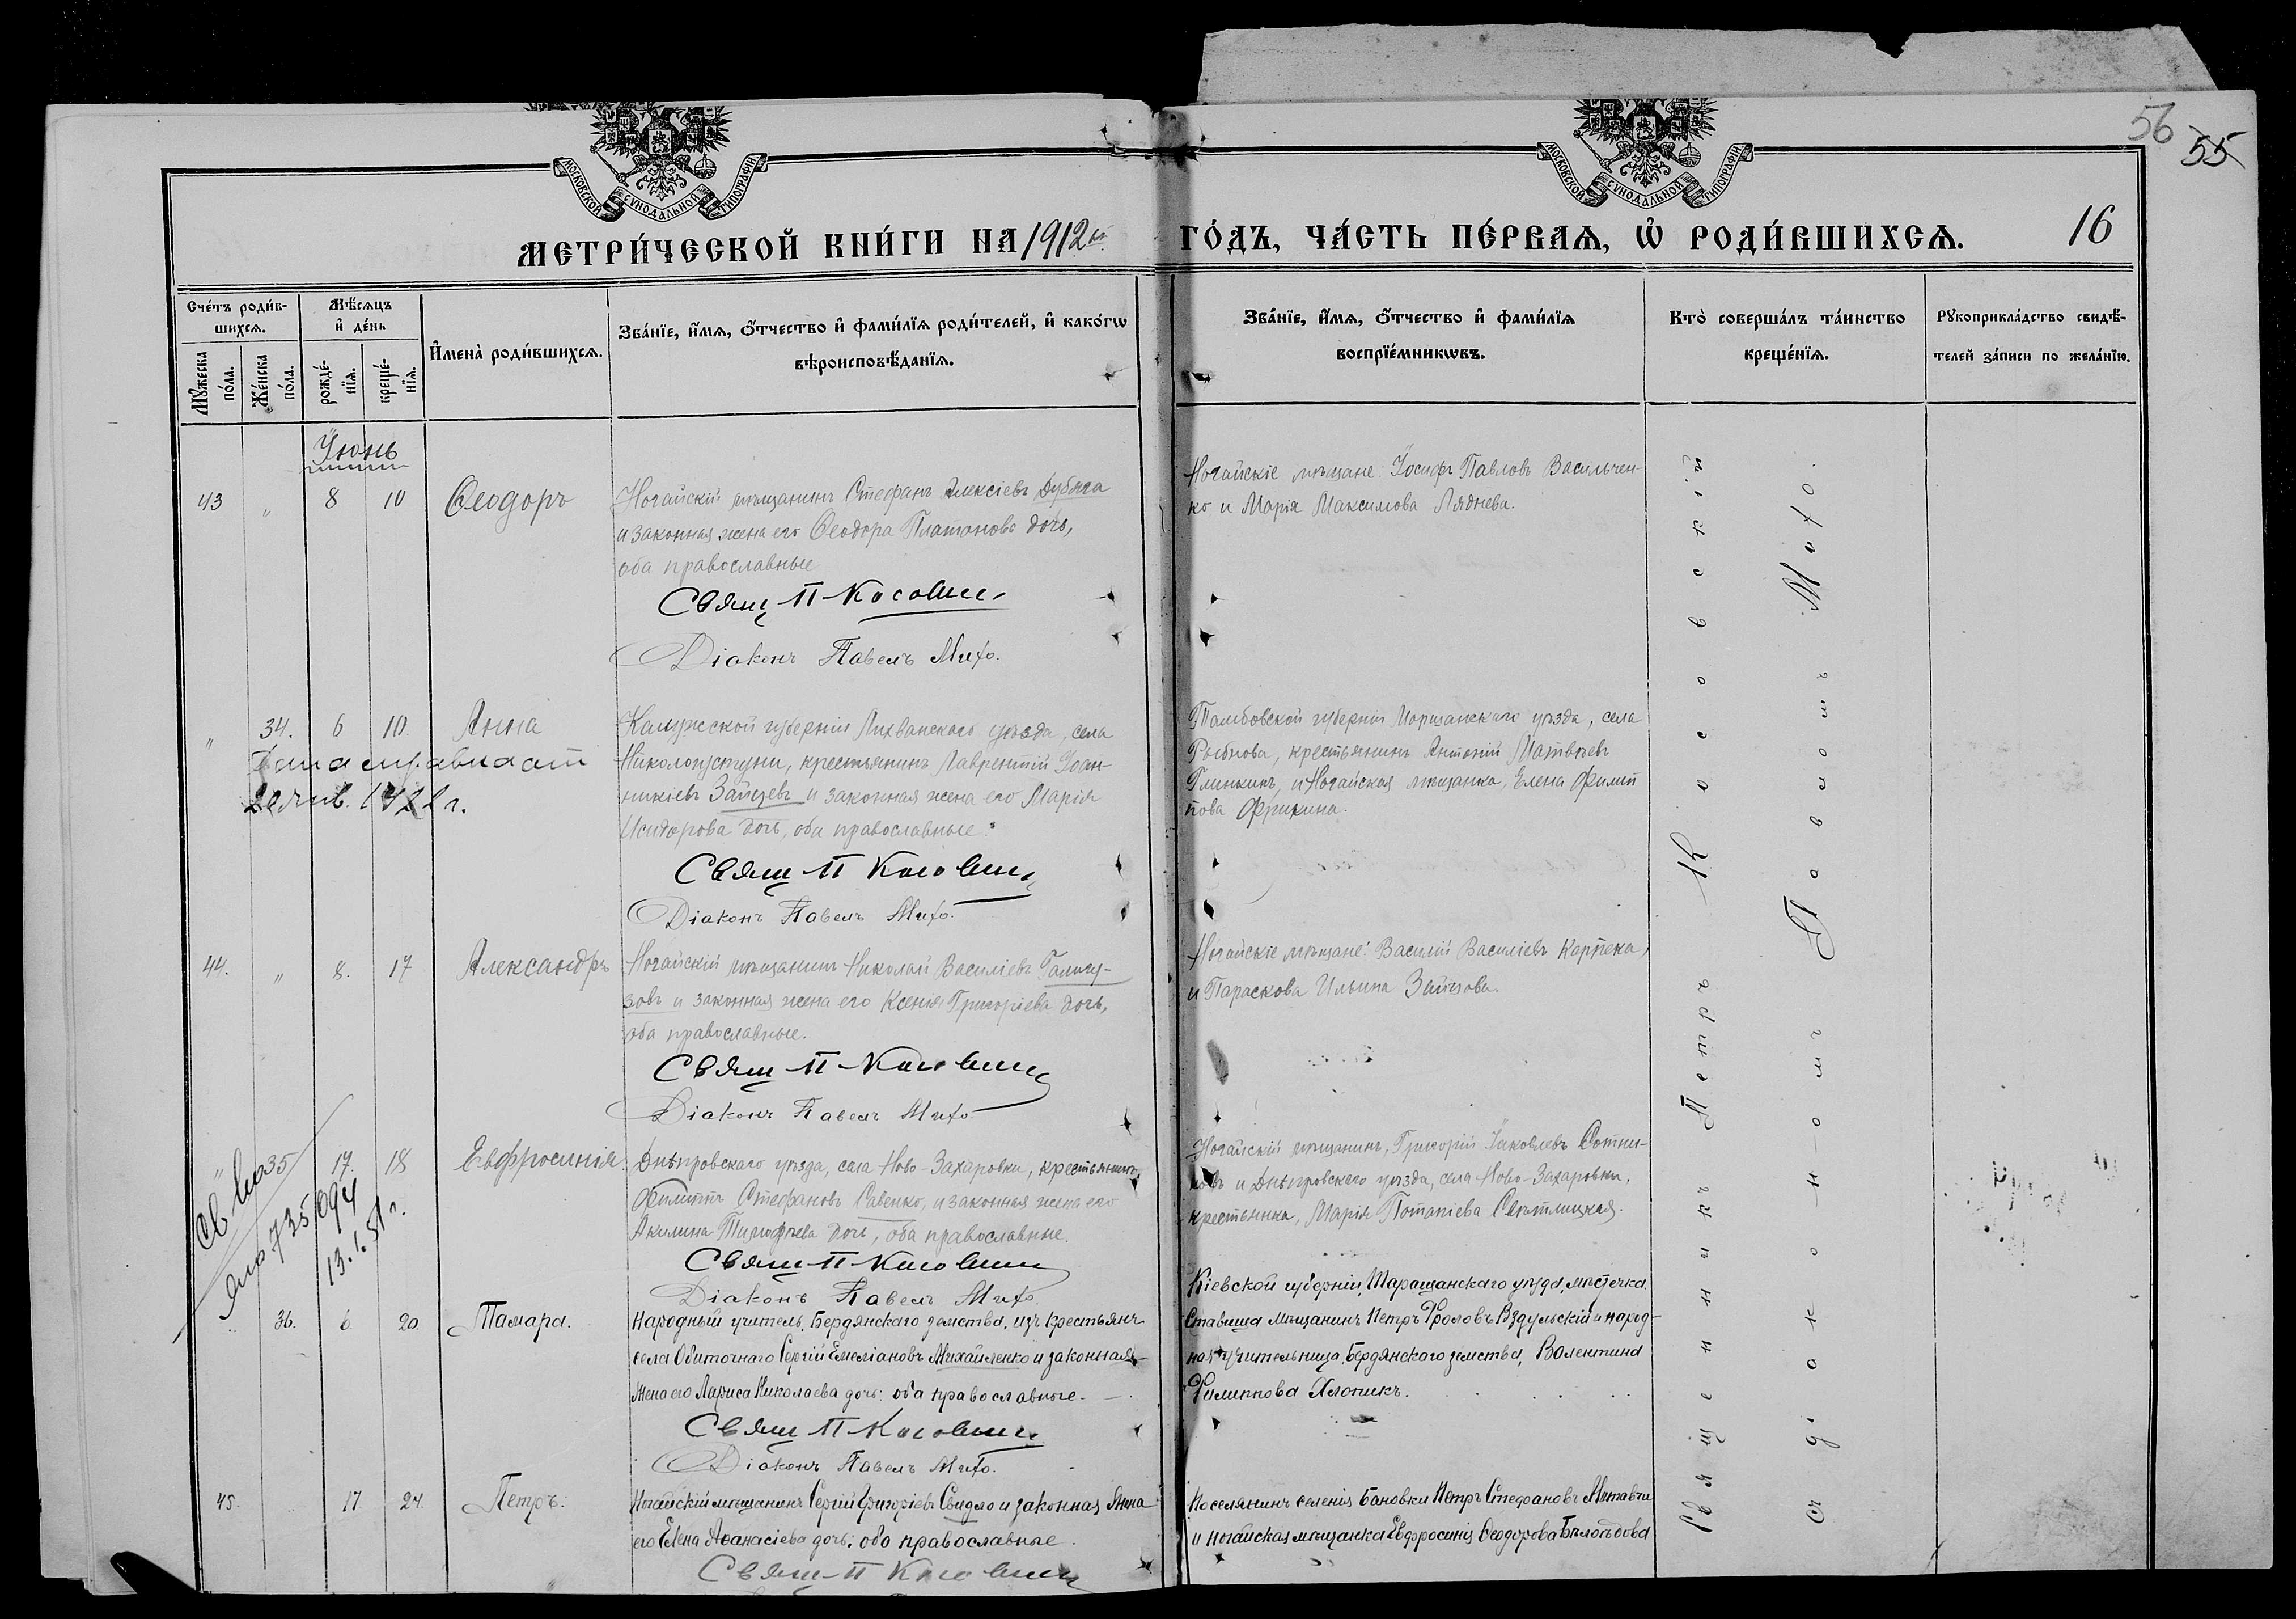 56
55
МОСКОВСКОЙ СѴНОДАЛЬНОЙ ТИПОГРАФІИ
МОСКОВСКОЙ СѴНОДАЛЬНОЙ ТИПОГРАФІИ
МЕТРИ́ЧЕСКОЙ КНИ́ГИ НА 1912й
ГО́ДЪ, ЧА́СТЬ ПЕ́РВАѦ, Ѡ҆ РОДИ́ВШИХСѦ.
16
Сче́тъ роди́в-
шихсѧ.
Мꙋ́жеска
по́ла.
Же́нска
по́ла.
Мѣ́сѧцъ
и҆ де́нь
рожде́-
нїѧ.
креще́-
нїѧ.
И҆мена̀ роди́вшихсѧ.
Зва́нїе, и҆́мѧ, ѻ҆́тчество и҆ фами́лїѧ роди́телей, и҆ како́гѡ
вѣроисповѣ́данїѧ.
Зва́нїе, и҆́мѧ, ѻ҆́тчество и҆ фами́лїѧ
воспрїе́мникѡвъ.
Кто̀ соверша́лъ та́инство
креще́нїѧ.
Рꙋкоприкла́дство свидѣ́-
телей за́писи по жела́нїю.
Іюнь
43 " 8 10 Ѳеодоръ
Ногайскій мѣщанинъ Стефанъ Алексіевъ Дубяга
и законная жена его Ѳеодора Платонова дочь,
оба православные
Свящ П Косовск
Діаконъ Павелъ Мито.
Ногайскіе мѣщане: Іосифъ Павловъ Васильчен-
ко и Марія Максимова Ляднева.
" 34. 6 10. Анна
Калужской губерніи Лихванскаго уѣзда, села
Николопустуни, крестьянинъ Лаврентій Іоан-
никіевъ Зайцевъ и законная жена его Марія
Исидорова дочь, оба православные.
Свящ П Косовск
Діаконъ Павелъ Мито.
Тамбовской губерніи Моршанскаго уѣзда, села
Рыбкова, крестьянинъ Антоній Матвѣевъ
Глинкинъ, и Ногайская мѣщанка, Елена Филип
пова Фрикина.
44. " 8. 17 Александръ
Ногайскій мѣщанинъ Николай Василіевъ Галигу-
зовъ и законная жена его Ксенія Григоріева дочь,
оба православные.
Свящ П Косовск
Діаконъ Павелъ Мито
Ногайскіе мѣщане: Василій Василіевъ Карпека,
и Параскова Ильина Зайцова.
" 35 17. 18 Евфросинія
735094
13.1.51 г.
Днѣпровскаго уѣзда, села Ново-Захаровки, крестьянинъ
Филиппъ Стефановъ Савенко, и законная жена его
Акилина Тимофѣева дочь, оба православные.
Свящ П Косовск
Діаконъ Павелъ Мито.
Ногайскій мѣщанинъ, Григорій Іаковлевъ Сотни-
ковъ и Днѣпровскаго уѣзда, села Ново-Захаровки,
крестьянка, Марія Потапіева Свѣтлицкая.
36. 6 20. Тамара.
Народный учитель, Бердянскаго земства, изъ крестьянъ
села Обиточнаго Сергій Емеліановъ Михайленко и законная
жена его Лариса Николаева дочь: оба православные.
Свящ П Косовск
Діаконъ Павелъ Мито.
Кіевской губерніи, Таращанскаго уѣзда, мѣстечка
Ставища мѣщанинъ Петръ Фроловъ Вздульскій и народ-
ная учительница, Бердянскаго земства, Валентина
Филиппова Хлопикъ.
45. 17 24. Петръ.
Ногайскій мѣщанинъ Сергій Григоріевъ Свидло и законная жена
его Елена Аѳанасіева дочь: оба православные.
Свящ П Косовск
Поселянинъ селенія Бановки Петръ Стефановъ
и ногайская мѣщанка Евфросинія Ѳеодорова Бѣлогубова
Священникъ Петръ Косовскій
съ діакономъ Павломъ Мито.